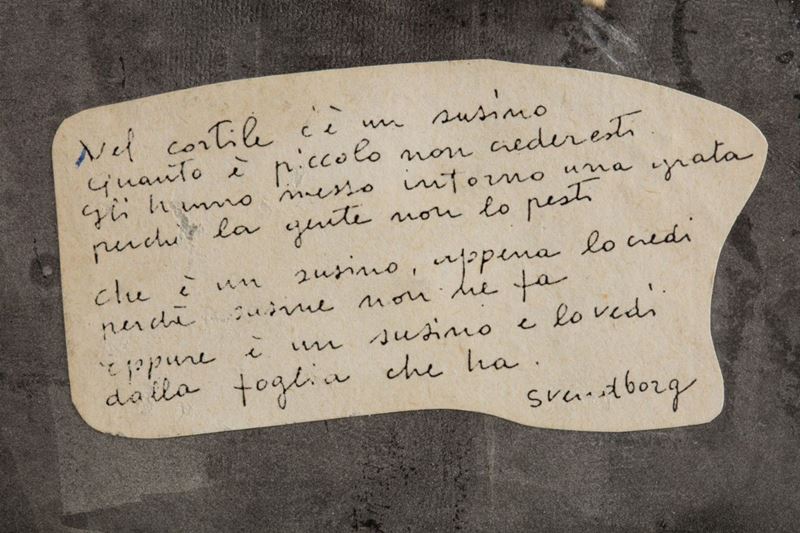 Nel cortile c'è un susino
quanto è piccolo non crederesti.
gli hanno messo intorno una grata
perché la gente non lo pesti
che è un susino, appena lo credi
perché susine non ne fa
eppure è un susino e lo vedi
dalla foglia che ha.
Svendborg